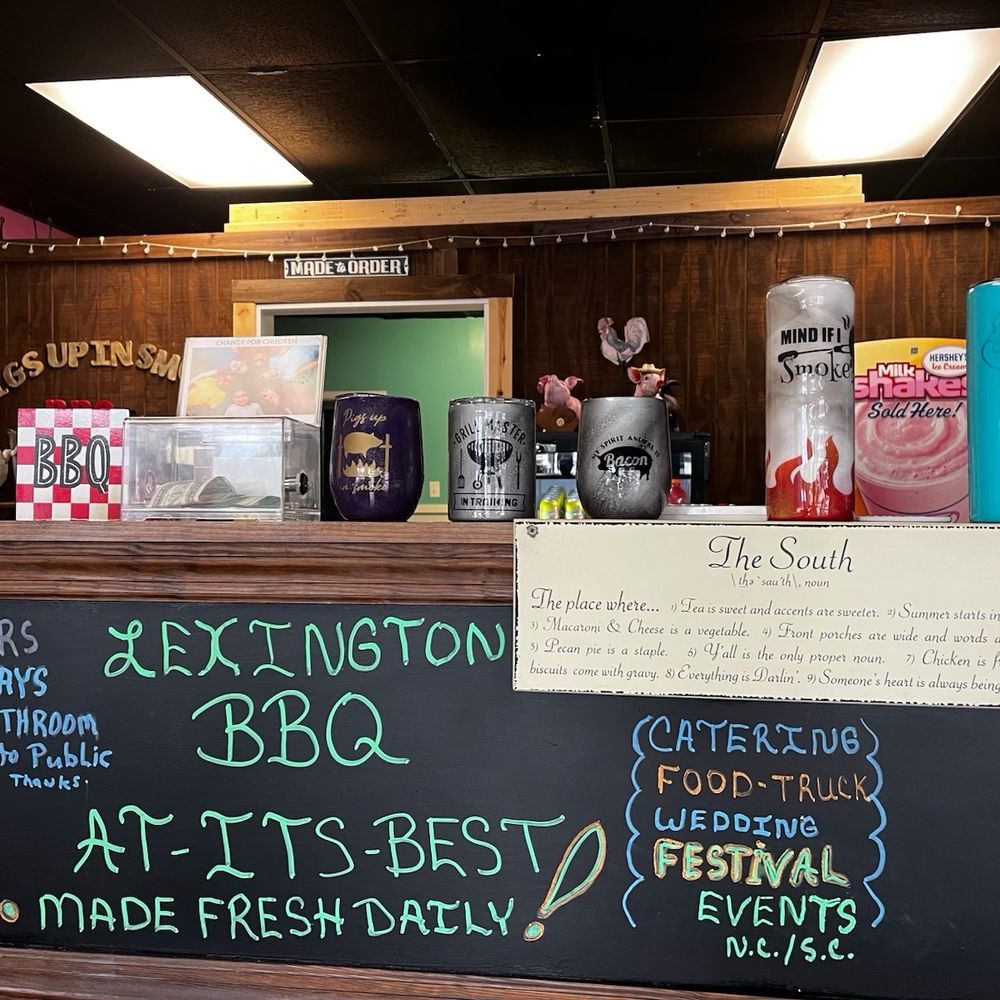 MADE to ORDER
IGS UP IN SM
CHANGE FOR CHILDREN
BBQ
BBQ
Pigs up
in smoke
GRILL MASTER
IN TRAINING
MY SPIRIT ANIMAL IS
Bacon
MIND IF I
Smoke?
HERSHEY'S
Ice Cream
Milk
Shakes
Sold Here!
The South
\ thə ˈsau̇th\, noun
The place where... 1) Tea is sweet and accents are sweeter. 2) Summer starts in
3) Macaroni & Cheese is a vegetable. 4) Front porches are wide and words a
5) Pecan pie is a staple. 6) Y'all is the only proper noun. 7) Chicken is f
biscuits come with gravy. 8) Everything is Darlin'. 9) Someone's heart is always being
RS
AYS
THROOM
to Public
Thanks.
LEXINGTON
BBQ
AT-ITS-BEST!
MADE FRESH DAILY
(CATERING)
FOOD-TRUCK
WEDDING
FESTIVAL
EVENTS
N.C./S.C.